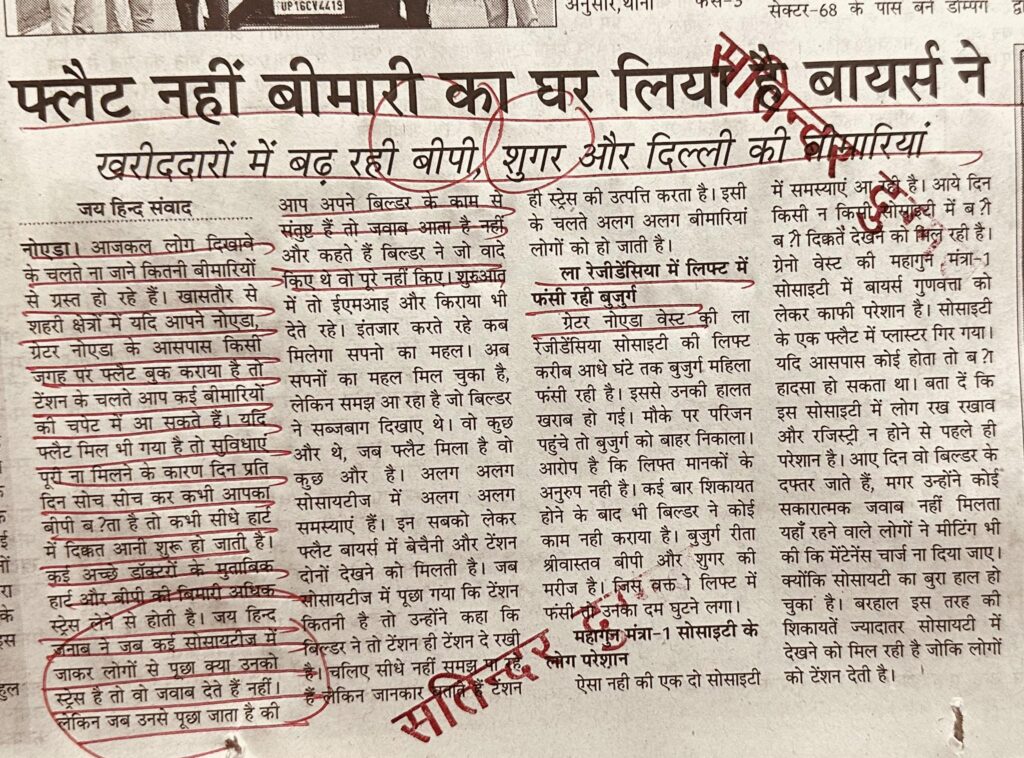 UP16CV4419
अनुसार,थाना फेस-3
सेक्टर-68 के पास बने डंम्पिंग
फ्लैट नहीं बीमारी का घर लिया है बायर्स ने
खरीददारों में बढ़ रही बीपी, शुगर और दिल्ली की बीमारियां
जय हिन्द संवाद
नोएडा। आजकल लोग दिखावे
के चलते ना जाने कितनी बीमारियों
से ग्रस्त हो रहे हैं। खासतौर से
शहरी क्षेत्रों में यदि आपने नोएडा,
ग्रेटर नोएडा के आसपास किसी
जगह पर फ्लैट बुक कराया है तो
टेंशन के चलते आप कई बीमारियों
की चपेट में आ सकते हैं। यदि
फ्लैट मिल भी गया है तो सुविधाएं
पूरी ना मिलने के कारण दिन प्रति
दिन सोच सोच कर कभी आपका
बीपी ब?ता है तो कभी सीधे हार्ट
में दिक्कत आनी शुरू हो जाती है।
कई अच्छे डॉक्टरों के मुताबिक
हार्ट और बीपी की बिमारी अधिक
स्ट्रेस लेने से होती है। जय हिन्द
जनाब ने जब कई सोसायटीज में
जाकर लोगों से पूछा क्या उनको
स्ट्रेस है तो वो जवाब देते हैं नहीं।
लेकिन जब उनसे पूछा जाता है की
आप अपने बिल्डर के काम से
संतुष्ट हैं तो जवाब आता है नहीं
और कहते हैं बिल्डर ने जो वादे
किए थे वो पूरे नहीं किए। शुरुआत
में तो ईएमआइ और किराया भी
देते रहे। इंतजार करते रहे कब
मिलेगा सपनो का महल। अब
सपनों का महल मिल चुका है,
लेकिन समझ आ रहा है जो बिल्डर
ने सब्जबाग दिखाए थे। वो कुछ
और थे, जब फ्लैट मिला है वो
कुछ और है। अलग अलग
सोसायटीज में अलग अलग
समस्याएं हैं। इन सबको लेकर
फ्लैट बायर्स में बेचैनी और टेंशन
दोनों देखने को मिलती है। जब
सोसायटीज में पूछा गया कि टेंशन
कितनी है तो उन्होंने कहा कि
बिल्डर ने तो टेंशन ही टेंशन दे रखी
है। चलिए सीधे नहीं समझ पा रहे
हैं लेकिन जानकार बताते हैं टेंशन
ही स्ट्रेस की उत्पत्ति करता है। इसी
के चलते अलग अलग बीमारियां
लोगों को हो जाती है।
ला रेजीडेंसिया में लिफ्ट में
फंसी रही बुजुर्ग
ग्रेटर नोएडा वेस्ट की ला
रेजीडेंसिया सोसाइटी की लिफ्ट
करीब आधे घंटे तक बुजुर्ग महिला
फंसी रही है। इससे उनकी हालत
खराब हो गई। मौके पर परिजन
पहुंचे तो बुजुर्ग को बाहर निकाला।
आरोप है कि लिफ्त मानकों के
अनुरुप नही है। कई बार शिकायत
होने के बाद भी बिल्डर ने कोई
काम नही कराया है। बुजुर्ग रीता
श्रीवास्तव बीपी और शुगर की
मरीज है। जिस वक्त ो लिफ्ट में
फंसी तो उनका दम घुटने लगा।
महागुन मंत्रा-1 सोसाइटी के
लोग परेशान
ऐसा नही की एक दो सोसाइटी
में समस्याएं आ रही है। आये दिन
किसी न किसी सोसाइटी में ब?ी
ब?ी दिक्कतें देखने को मिल रही है।
ग्रेनो वेस्ट की महागुन मंत्रा-1
सोसाइटी में बायर्स गुणवत्ता को
लेकर काफी परेशान है। सोसाइटी
के एक फ्लैट में प्लास्टर गिर गया।
यदि आसपास कोई होता तो ब?ा
हादसा हो सकता था। बता दें कि
इस सोसाइटी में लोग रख रखाव
और रजिस्ट्री न होने से पहले ही
परेशान है। आए दिन वो बिल्डर के
दफ्तर जाते हैं, मगर उन्होंने कोई
सकारात्मक जवाब नहीं मिलता
यहाँ रहने वाले लोगों ने मीटिंग भी
की कि मेंटेनेंस चार्ज ना दिया जाए।
क्योंकि सोसायटी का बुरा हाल हो
चुका है। बरहाल इस तरह की
शिकायतें ज्यादातर सोसायटी में
देखने को मिल रही है जोकि लोगों
को टेंशन देती है।
सतिन्दर
सतिन्दर